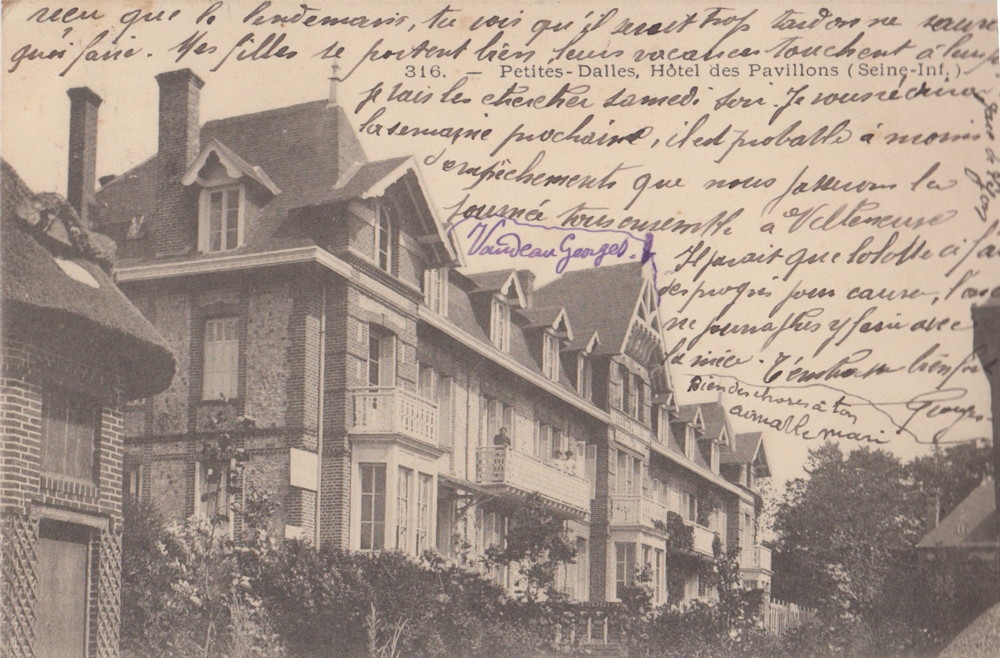 reçu que le lendemain, tu vois qu'il serait trop tard on ne saura
quoi faire. Mes filles se portent bien, leurs vacances touchent à leur
316. — Petites-Dalles, Hôtel des Pavillons (Seine-Inf.)
je vais les chercher samedi soir. Je vous écrirai
la semaine prochaine, il est probable à moins
d'empêchements que nous passerons la
journée tous ensemble à Villeneuse
Vaudeau Georges.
Il parait que lolotte a fait
des progrès pour causer, l'on
ne s'y faire avec
la mère. T'embrasse bien fort
Georges
Bien des choses à ton
aimable mari